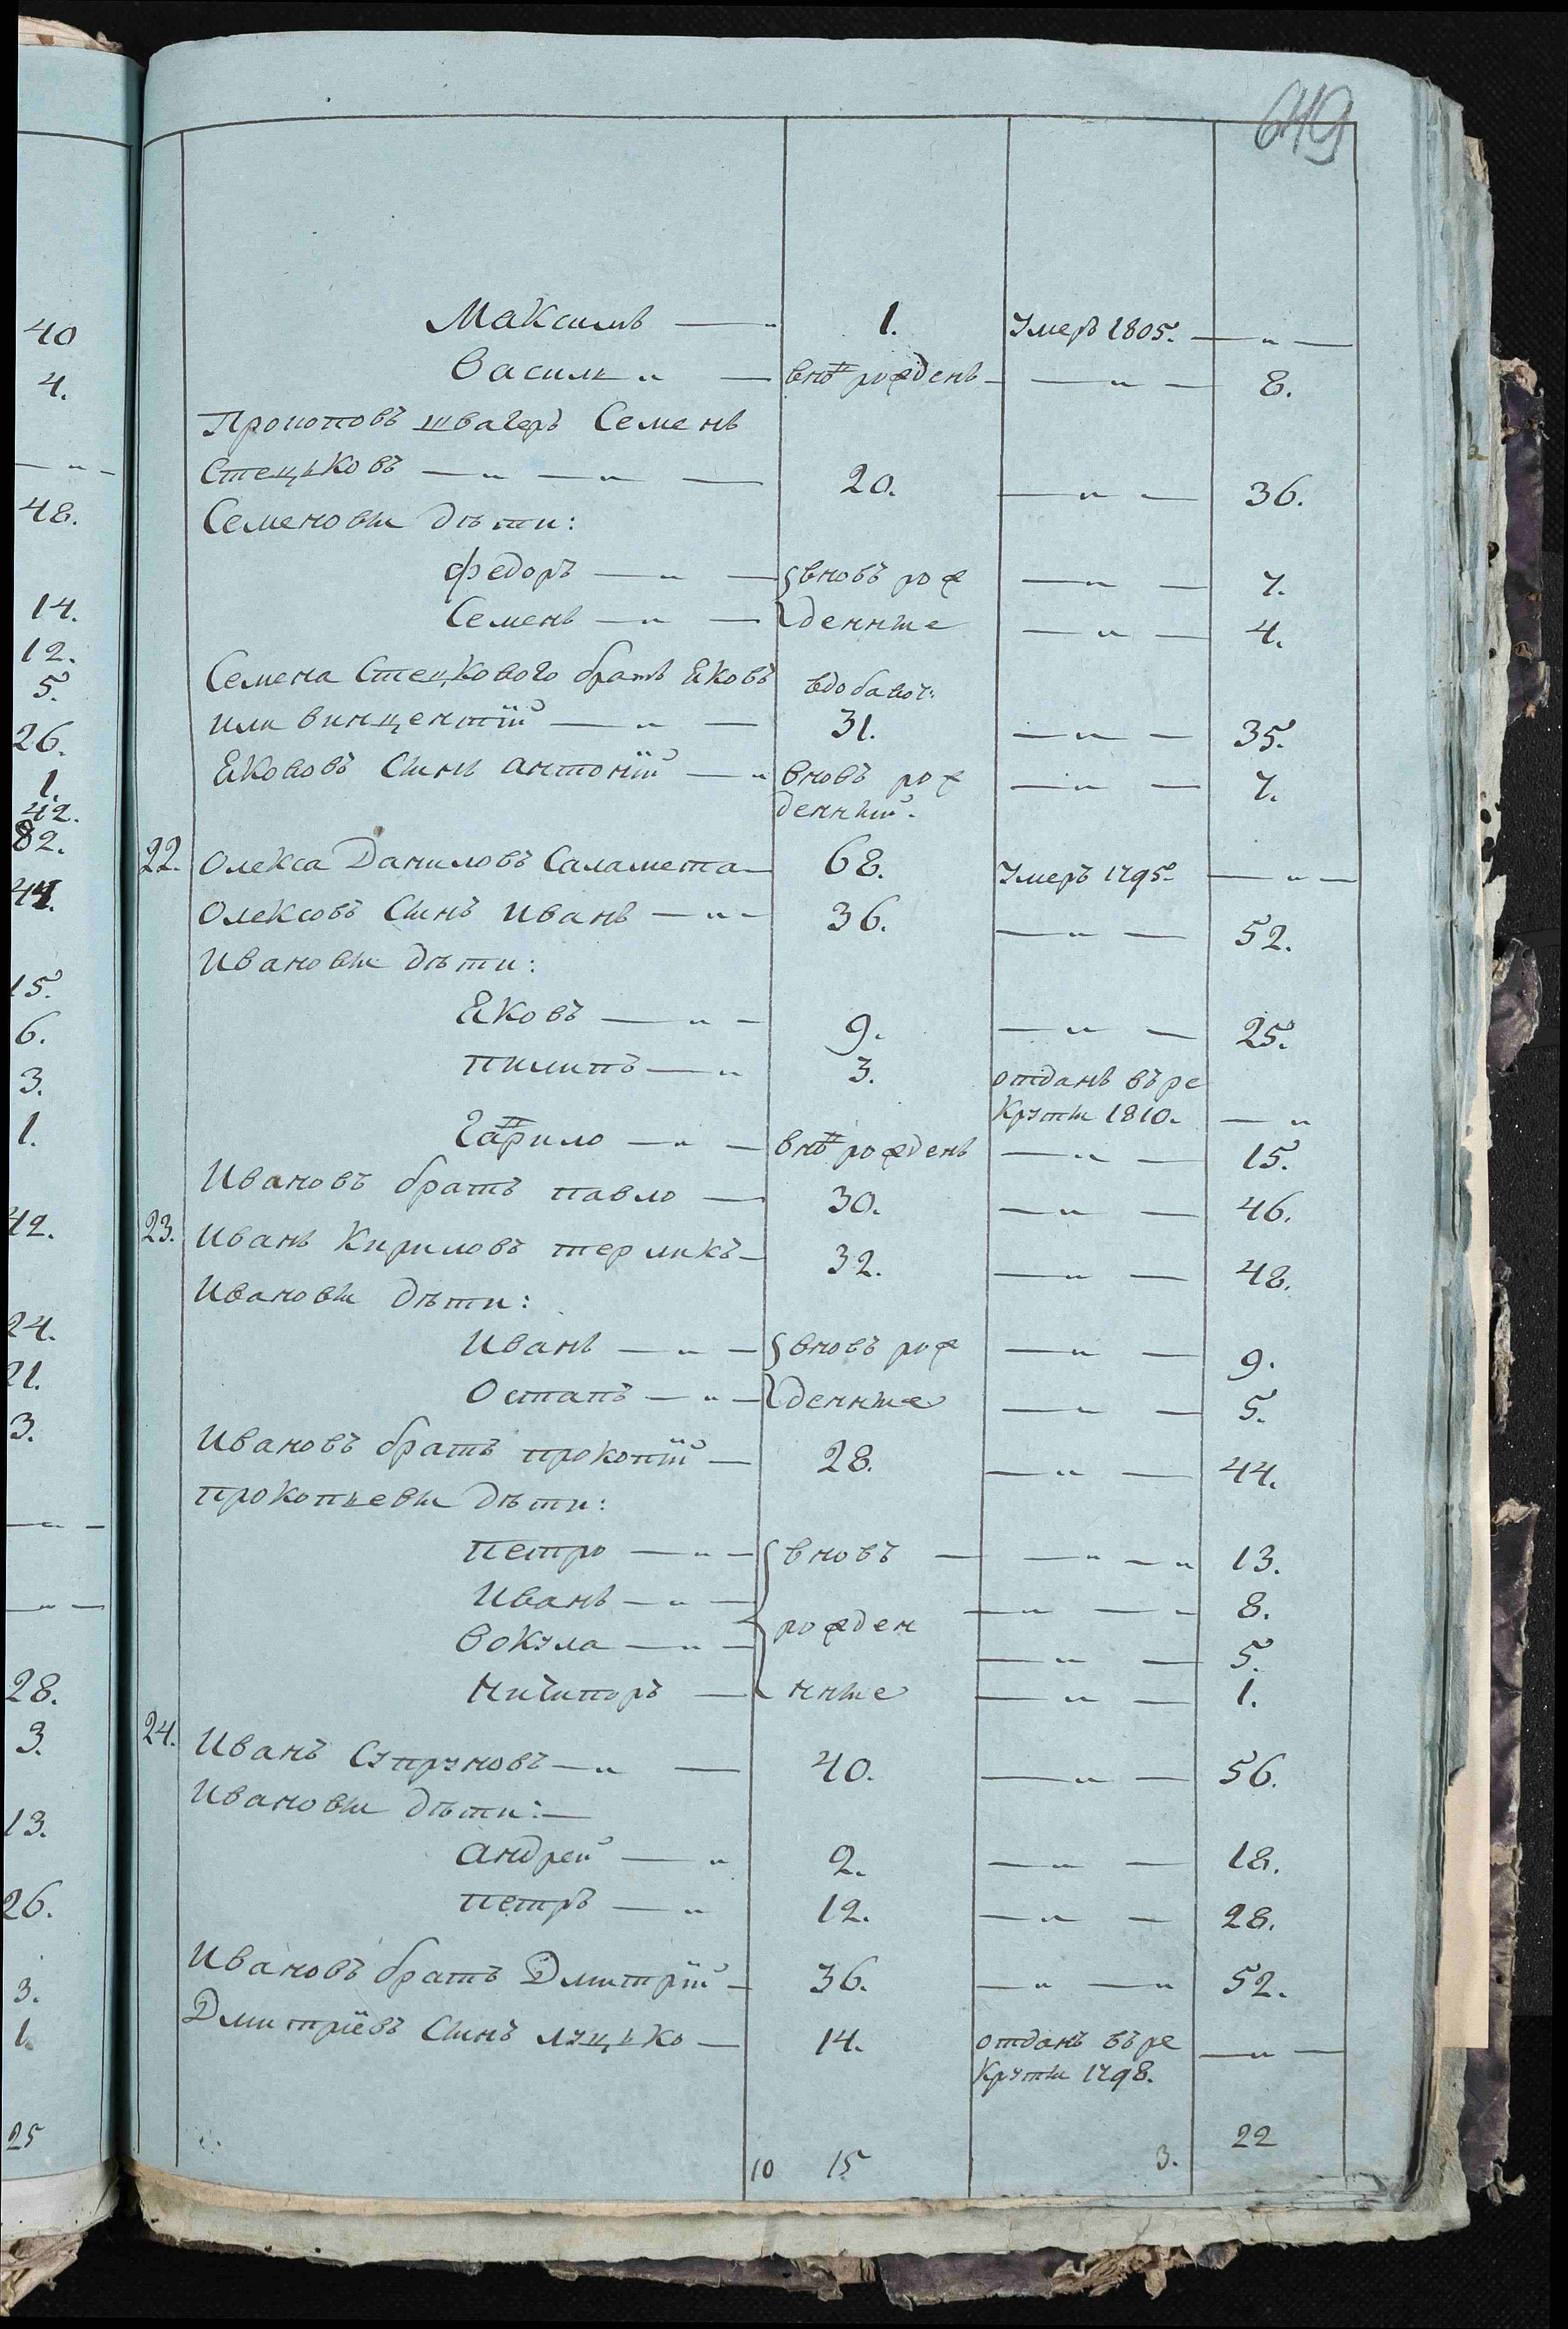 649
Максимъ — 1. Умеръ 1805. — „ —
Василь „ — внѡвъ рожденъ — — „ — 8.
Прокоповъ швагеръ Семенъ
Стецьковъ — „ — „ — 20. — „ — 36.
Семеновы дѣти:
Федоръ — „ — вновъ рож — „ — 7.
Семенъ — „ — денные — „ — 4.
Семена Стецкового братъ Яковъ вдобавоч:
или винцентій — „ — 31. — „ — 35.
Якововъ Сынъ антоній — „ вновъ рож — „ — 7.
денный.
22. Олекса Даниловъ Саламета — 68. Умеръ 1795. — „ —
Олексовъ Сынъ Иванъ — „ — 36. — „ — 52.
Ивановы дѣти:
Яковъ — „ — 9. — „ — 25.
пилипъ — „ 3. отданъ въ ре
круты 1810. — „
Гаврило — „ — внѡвъ рожденъ — „ — 15.
Ивановъ братъ павло — 30. — „ — 46.
23. Иванъ Кириловъ терликъ — 32. — „ — 48.
Ивановы дѣти:
Иванъ — „ — вновъ рож — „ — 9.
Остапъ — „ — денные — „ — 5.
Ивановъ братъ прокопій — 28. — „ — 44.
прокопьевы дѣти:
петро — „ — вновъ — — „ — „ 13.
Иванъ — „ — — „ — 8.
рожден
Вокула — „ — — „ — 5.
Ничипоръ — нные — „ — 1.
24. Иванъ Супруновъ — „ — 40. — „ — 56.
Ивановы дѣти: —
андрей — „ 2. — „ — 18.
петръ — „ 12. — „ — 28.
Ивановъ братъ Дмитрій — 36. — „ — „ 52.
Дмитріевъ Сынъ луцько — 14. отданъ въ ре — „ —
круты 1798.
10 15 3. 22
40
4.
— „ —
48.
14.
12.
5.
26.
1.
42.
82.
44.
15.
6.
3.
1.
42.
24.
21.
3.
— „ —
— „ —
28.
3.
13.
26.
3.
1.
25